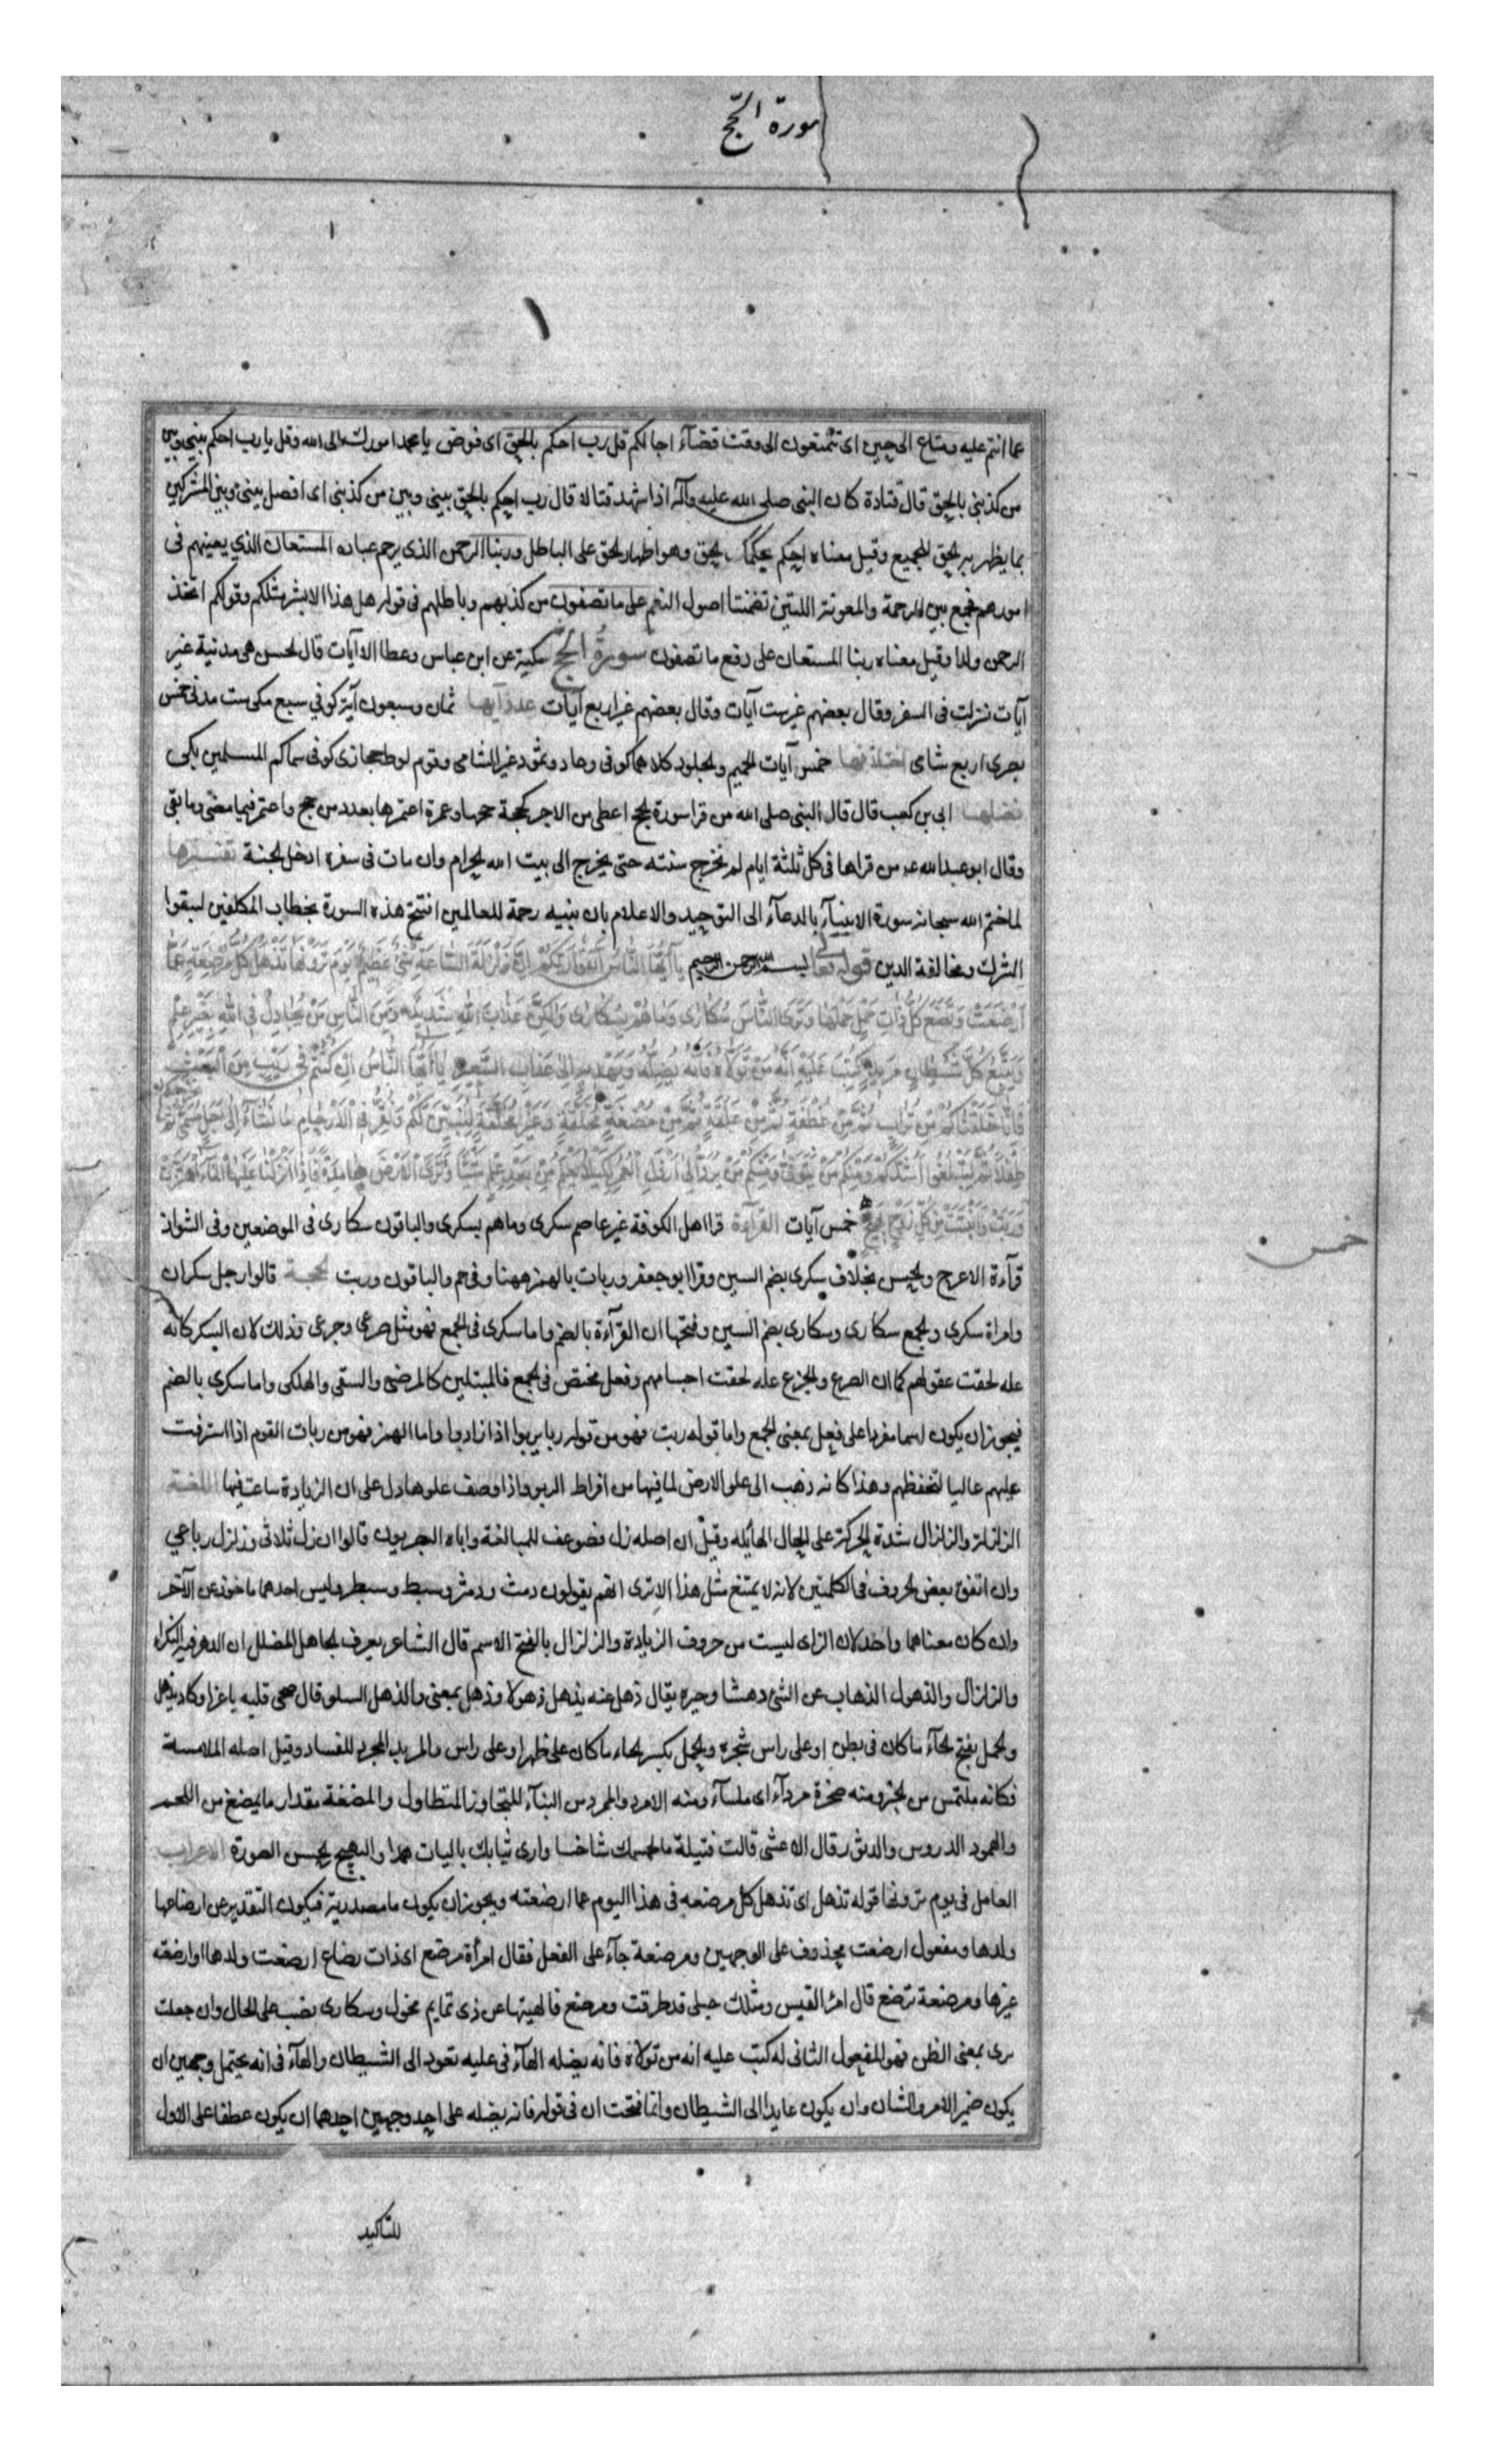 سورة الحج
١
عما انتم عليه ومتاع الى حين اى تتمتعون الى وقت قضآء اجالكم قل رب احكم بالحق اى فوض يا محمد امورك الى الله وقل يا رب احكم بينى وبين
من كذبنى بالحق قال قتادة كان النبى صلى الله عليه وآله اذا شهد قتالا قال رب احكم بالحق بينى وبين من كذبنى اى افصل بينى وبين المشركين
بما يظهر به الحق للجميع وقيل معناه احكم بحكمك الحق وهو اظهار الحق على الباطل وربنا الرحمن الذى يرحم عباده المستعان الذي يعينهم فى
امورهم فجمع بين الرحمة والمعونة اللتين تضمنتا اصول النعم على ما تصفون من كذبهم وباطلهم فى قولهم هل هذا الا بشر مثلكم وقولكم اتخذ
الرحمن ولدا وقيل معناه ربنا المستعان على دفع ما تصفون سورة الحج مكية عن ابن عباس وعطا الا آيات قال الحسن هى مدنية غير
آيات نزلت فى السفر وقال بعضهم غير ست آيات وقال بعضهم غير اربع آيات عدد آيها ثمان وسبعون آية كوفي سبع مكى ست مدنى خمس
بصرى اربع شامى اختلافها خمس آيات الحميم والجلود كلاهما كوفى وعاد وثمود غير الشامى وقوم لوط حجازى كوفى سماكم المسلمين مكى
فضلها ابى بن كعب قال قال النبى صلى الله من قرا سورة الحج اعطى من الاجر كحجة حجها وعمرة اعتمرها بعدد من حج واعتمر فيما مضى وما بقى
وقال ابو عبدالله عه من قراها فى كل ثلثة ايام لم تخرج سنته حتى يخرج الى بيت الله الحرام وان مات فى سفره ادخل الجنة تفسيرها
لما ختم الله سبحانه سورة الانبيآء بالدعآء الى التوحيد والاعلام بان نبيه رحمة للعالمين افتتح هذه السورة بخطاب المكلفين ليتقوا
الشرك ومخالفة الدين قوله تعالى بسم الله الرحمن الرحيم يا أَيُّهَا النَّاسُ اتَّقُوا رَبَّكُمْ إِنَّ زَلْزَلَةَ السَّاعَةِ شَيْءٌ عَظِيمٌ يَوْمَ تَرَوْنَهَا تَذْهَلُ كُلُّ مُرْضِعَةٍ عَمَّا
أَرْضَعَتْ وَتَضَعُ كُلُّ ذَاتِ حَمْلٍ حَمْلَهَا وَتَرَى النَّاسَ سُكَارَى وَمَا هُمْ بِسُكَارَى وَلَكِنَّ عَذَابَ اللَّهِ شَدِيدٌ وَمِنَ النَّاسِ مَنْ يُجَادِلُ فِي اللَّهِ بِغَيْرِ عِلْمٍ
وَيَتَّبِعُ كُلَّ شَيْطَانٍ مَرِيدٍ كُتِبَ عَلَيْهِ أَنَّهُ مَنْ تَوَلَّاهُ فَأَنَّهُ يُضِلُّهُ وَيَهْدِيهِ إِلَى عَذَابِ السَّعِيرِ يَا أَيُّهَا النَّاسُ إِنْ كُنْتُمْ فِي رَيْبٍ مِنَ الْبَعْثِ
فَإِنَّا خَلَقْنَاكُمْ مِنْ تُرَابٍ ثُمَّ مِنْ نُطْفَةٍ ثُمَّ مِنْ عَلَقَةٍ ثُمَّ مِنْ مُضْغَةٍ مُخَلَّقَةٍ وَغَيْرِ مُخَلَّقَةٍ لِنُبَيِّنَ لَكُمْ وَنُقِرُّ فِي الْأَرْحَامِ مَا نَشَاءُ إِلَى أَجَلٍ مُسَمًّى ثُمَّ نُخْرِجُكُمْ
طِفْلًا ثُمَّ لِتَبْلُغُوا أَشُدَّكُمْ وَمِنْكُمْ مَنْ يُتَوَفَّى وَمِنْكُمْ مَنْ يُرَدُّ إِلَى أَرْذَلِ الْعُمُرِ لِكَيْلَا يَعْلَمَ مِنْ بَعْدِ عِلْمٍ شَيْئًا وَتَرَى الْأَرْضَ هَامِدَةً فَإِذَا أَنْزَلْنَا عَلَيْهَا الْمَاءَ اهْتَزَّتْ
وَرَبَتْ وَأَنْبَتَتْ مِنْ كُلِّ زَوْجٍ بَهِيجٍ خمس آيات القرآءة قرا اهل الكوفة غير عاصم سكرى وما هم بسكرى والباقون سكارى فى الموضعين وفى الشواذ
خمس
قرآءة الاعرج والحسن بخلاف سكرى بضم السين وقرا ابو جعفر وربات بالهمز ههنا وفى حم والباقون وربت الحجة قالوا رجل سكران
وامراة سكرى والجمع سكارى وسكارى بضم السين وفتحها ان القرآءة بالضم واما سكرى فى الجمع فهو مثل صرعى وجرحى وذلك لان السكر كانه
عله لحقت عقولهم كما ان الصرع والجزع عله لحقت اجسامهم وفعلى مختص فى الجمع فالمبتلين كالمرضى والسقى والهلكى واما سكرى بالضم
فيجوز ان يكون اسما مفردا على فعلى بمعنى الجمع واما قوله ربت فهو من قوله ربا يربوا اذا زادوا واما الهمز فهو من ربات القوم اذا استرفت
عليهم عاليا لتحفظهم وهذا كانه ذهب الى علو الارض لما فيها من افراط الربو واذا وصف علوها دل على ان الزيادة ساعت فيها اللغة
الزلزلة والزلزال شدة الحركة على الحال الهائله وقيل ان اصله زل فضوعف للمبالغة واباه البصريون قالوا ان زل ثلاثى وزلزل رباعي
وان اتفق بعض الحروف فى الكلمتين لانه لا يمتنع مثل هذا الا ترى انهم يقولون دمث ودمثر وسبط وسبطر وليس احدهما ماخوذ عن الآخر
وان كان معناهما واحد لان الزاى ليست من حروف الزيادة والزلزال بالفتح الاسم قال الشاعر يعرف الجاهل المضلل ان الدهر فيه النكراء
والزلزال والذهول الذهاب عن الشئ دهشا وحيره يقال ذهل عنه يذهل ذهولا وذهل بمعنى والذهل السلو قال صحى قلبه يا عزا وكاد يذهل
والحمل بفتح الحآء ما كان فى بطن او على راس شجره والحمل بكسر الحاء ما كان على ظهر او على راس والمريد المجرد للفساد وقيل اصله الملامسة
فكانه ملتمس من الخير ومنه صخرة مردآء اى ملسآء ومنه الامرد والممرد من البنآء للتجاوز المتطاول والمضغة مقدار ما يمضغ من اللحم
والهمود الدروس والدثور قال الاعشى قالت قتيلة ما لجسمك شاخسا وارى ثيابك باليات همدا والبهيج الحسن الصورة الاعراب
العامل فى يوم ترونها قوله تذهل اى تذهل كل مرضعه فى هذا اليوم عما ارضعته ويجوز ان يكون ما مصدرية فيكون التقدير عن ارضاعها
ولدها ومفعول ارضعت محذوف على الوجهين ومرضعة جآء على الفعل فقال امرأة مرضع اى ذات رضاع ارضعت ولدها او ارضعته
غيرها ومرضعة ترضع قال امرؤ القيس ومثلك حبلى قد طرقت ومرضع فالهيتها عن ذى تمايم محول وسكارى نصب على الحال وان جعلت
برى بمعنى الظن فهو المفعول الثانى له كتب عليه انه من تولاه فانه يضله الهآء فى عليه تعود الى الشيطان والهآء فى انه يحتمل وجهين ان
يكون ضمير الامر والشان وان يكون عايدا الى الشيطان وانما فتحت ان فى قوله فانه يضله على احد وجهين احدهما ان يكون عطفا على الاول
للتاكيد